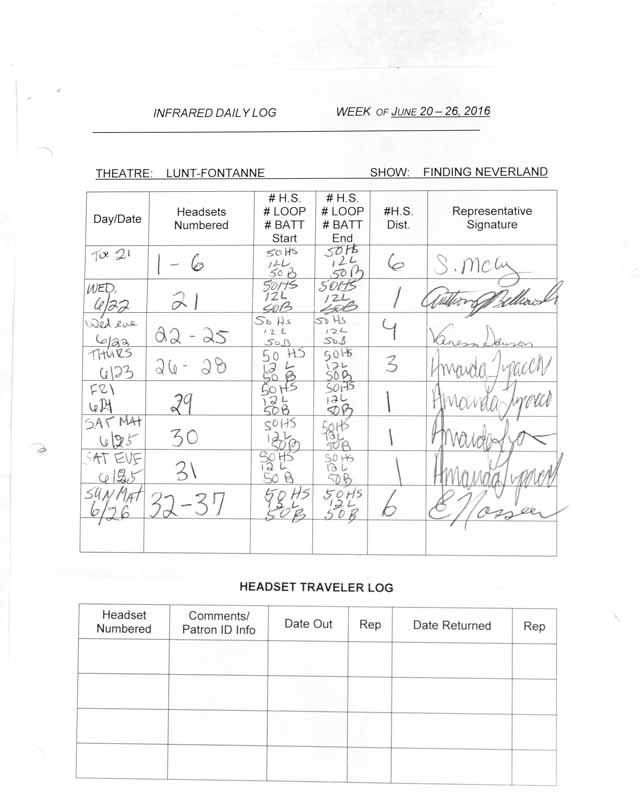 INFRARED DAILY LOG WEEK OF JUNE 20 – 26, 2016
THEATRE: LUNT-FONTANNE SHOW: FINDING NEVERLAND
Day/Date Headsets Numbered # H.S. # LOOP # BATT Start # H.S. # LOOP # BATT End #H.S. Dist. Representative Signature
Tue 21 1 - 6 50HS 12L 50B 50HS 12L 50B 6 S.
WED. 6/22 21 50HS 12L 50B 50HS 12L 50B 1 Anthony
Wed eve 6/22 22 - 25 50 Hs 12L 50B 50 Hs 12L 50B 4 Vanessa
THURS 6/23 26 - 28 50 HS 12 L 50 B 50HS 12L 50B 3 Amanda
FRI 29 50HS 12L 50B 50HS 12L 50B 1 Amanda
SAT MAT 6/25 30 50HS 12L 50B 50HS 12L 50B 1 Amanda
SAT EVE 6/25 31 50HS 12L 50 B 50HS 12L 50B 1 Amanda
SUN MAT 6/26 32-37 50HS 12L 50B 50HS 12L 50B 6 E
HEADSET TRAVELER LOG
Headset Numbered Comments/ Patron ID Info Date Out Rep Date Returned Rep